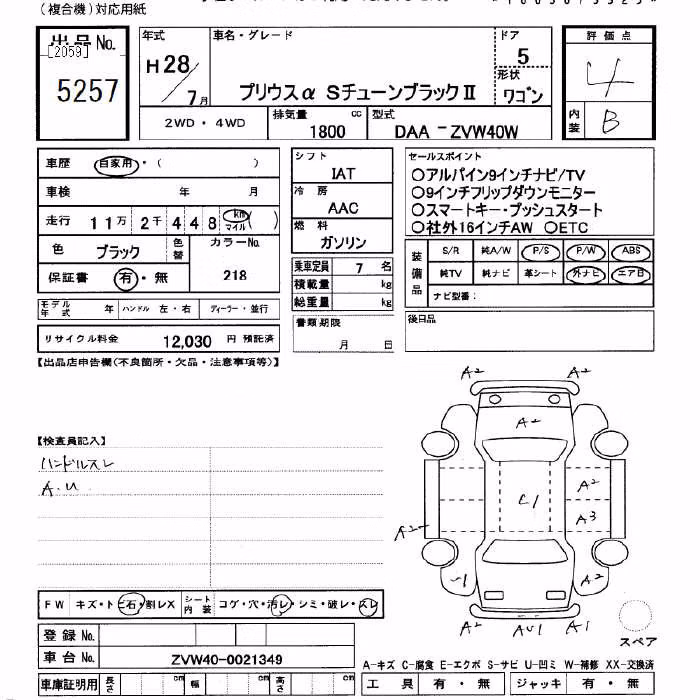 (複合機)対応用紙
出品No.
[2059]
5257
年式
H28/7月
車名・グレード
プリウスα SチューンブラックⅡ
ドア
5
形状
ワゴン
2WD・4WD
排気量
1800
cc
型式
DAA-ZVW40W
評価点
4
内装
B
車歴
自家用・( )
車検
年 月
走行
11万 2千 448 km マイル ( )
色
ブラック
色替
カラーNo.
218
保証書
有・無
モデル年式
年
ハンドル 左・右
ディーラー・並行
リサイクル料金
12,030 円 預託済
シフト
IAT
冷房
AAC
燃料
ガソリン
乗車定員 7 名
積載量 kg
総重量 kg
書類期限
月 日
セールスポイント
○アルパイン9インチナビ/TV
○9インチフリップダウンモニター
○スマートキー・プッシュスタート
○社外16インチAW ○ETC
装備品
S/R 純A/W P/S P/W ABS
純TV 純ナビ 革シート 外ナビ エアB
ナビ型番:
後日品
【出品店申告欄(不良箇所・欠品・注意事項等)】
【検査員記入】
ハンドルスレ
A.U
A2 A2
A2
A2
C1
A3
A2
U1
A2
A2 AU1 A1
スペア
FW キズ・トビ石・割レX
シート内装 コゲ・穴・汚レ・シミ・破レ・スレ
登録No.
車台No.
ZVW40-0021349
車庫証明用 長さ cm 幅 cm 高さ cm
A-キズ C-腐食 E-エクボ S-サビ U-凹ミ W-補修 XX-交換済
工具 有・無 ジャッキ 有・無